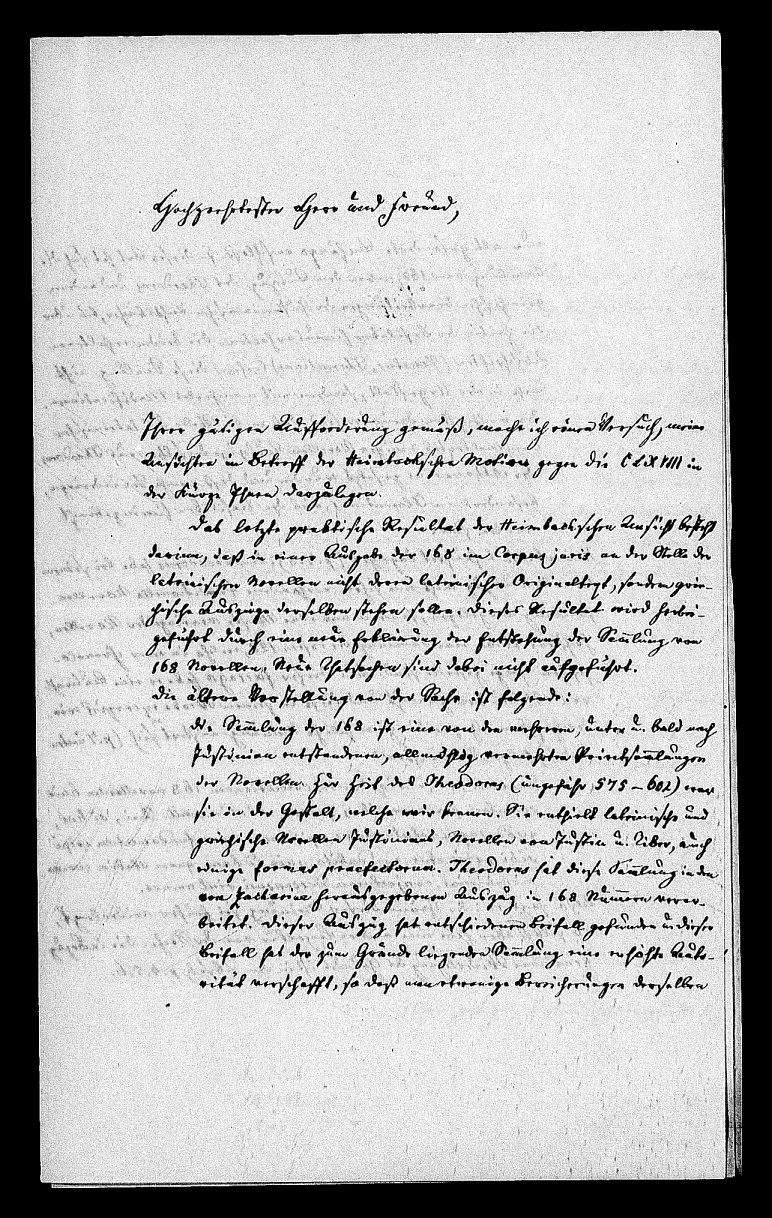 Hochverehrtester Herr und Freund,
Ihrer gütigen Aufforderung gemäß, mache ich einen Versuch, meine
Ansichten in Betreff der Heimbachschen Motive gegen die CLXVIII in
der Kürze Ihnen darzulegen.
Das letzte praktische Resultat der Heimbachschen Ansicht besteht
darinn, daß in einer Ausgabe der 168 im Corpus juris an der Stelle der
lateinischen Novellen nicht deren lateinischer Originaltext, sondern grie-
chische Auszüge derselben stehen sollen. Dieses Resultat wird herbei-
geführt durch eine neue Erklärung der Entstehung der Sammlung von
168 Novellen. Neue Thatsachen sind dabei nicht aufgeführt.
Die ältere Vorstellung von der Sache ist folgende:
Die Sammlung der 168 ist eine von den mehreren, unter u. bald nach
Justinian entstandenen, allmählig vermehrten Privatsammlungen
der Novellen. Zur Zeit des Theodorus (ungefähr 575–602) war
sie in der Gestalt, welche wir kennen. Sie enthielt lateinische und
griechische Novellen Justinians, Novellen von Justin u. Tiber, auch
einige formas praefectorum. Theodorus hat diese Sammlung in den
von Zachariae herausgegebenen Auszug in 168 Nummern verar-
beitet. Dieser Auszug hat entschiedenen Beifall gefunden u. dieser
Beifall hat der zum Grunde liegenden Sammlung eine erhöhte Auto-
rität verschafft, so daß man etwanige Bereicherungen derselben